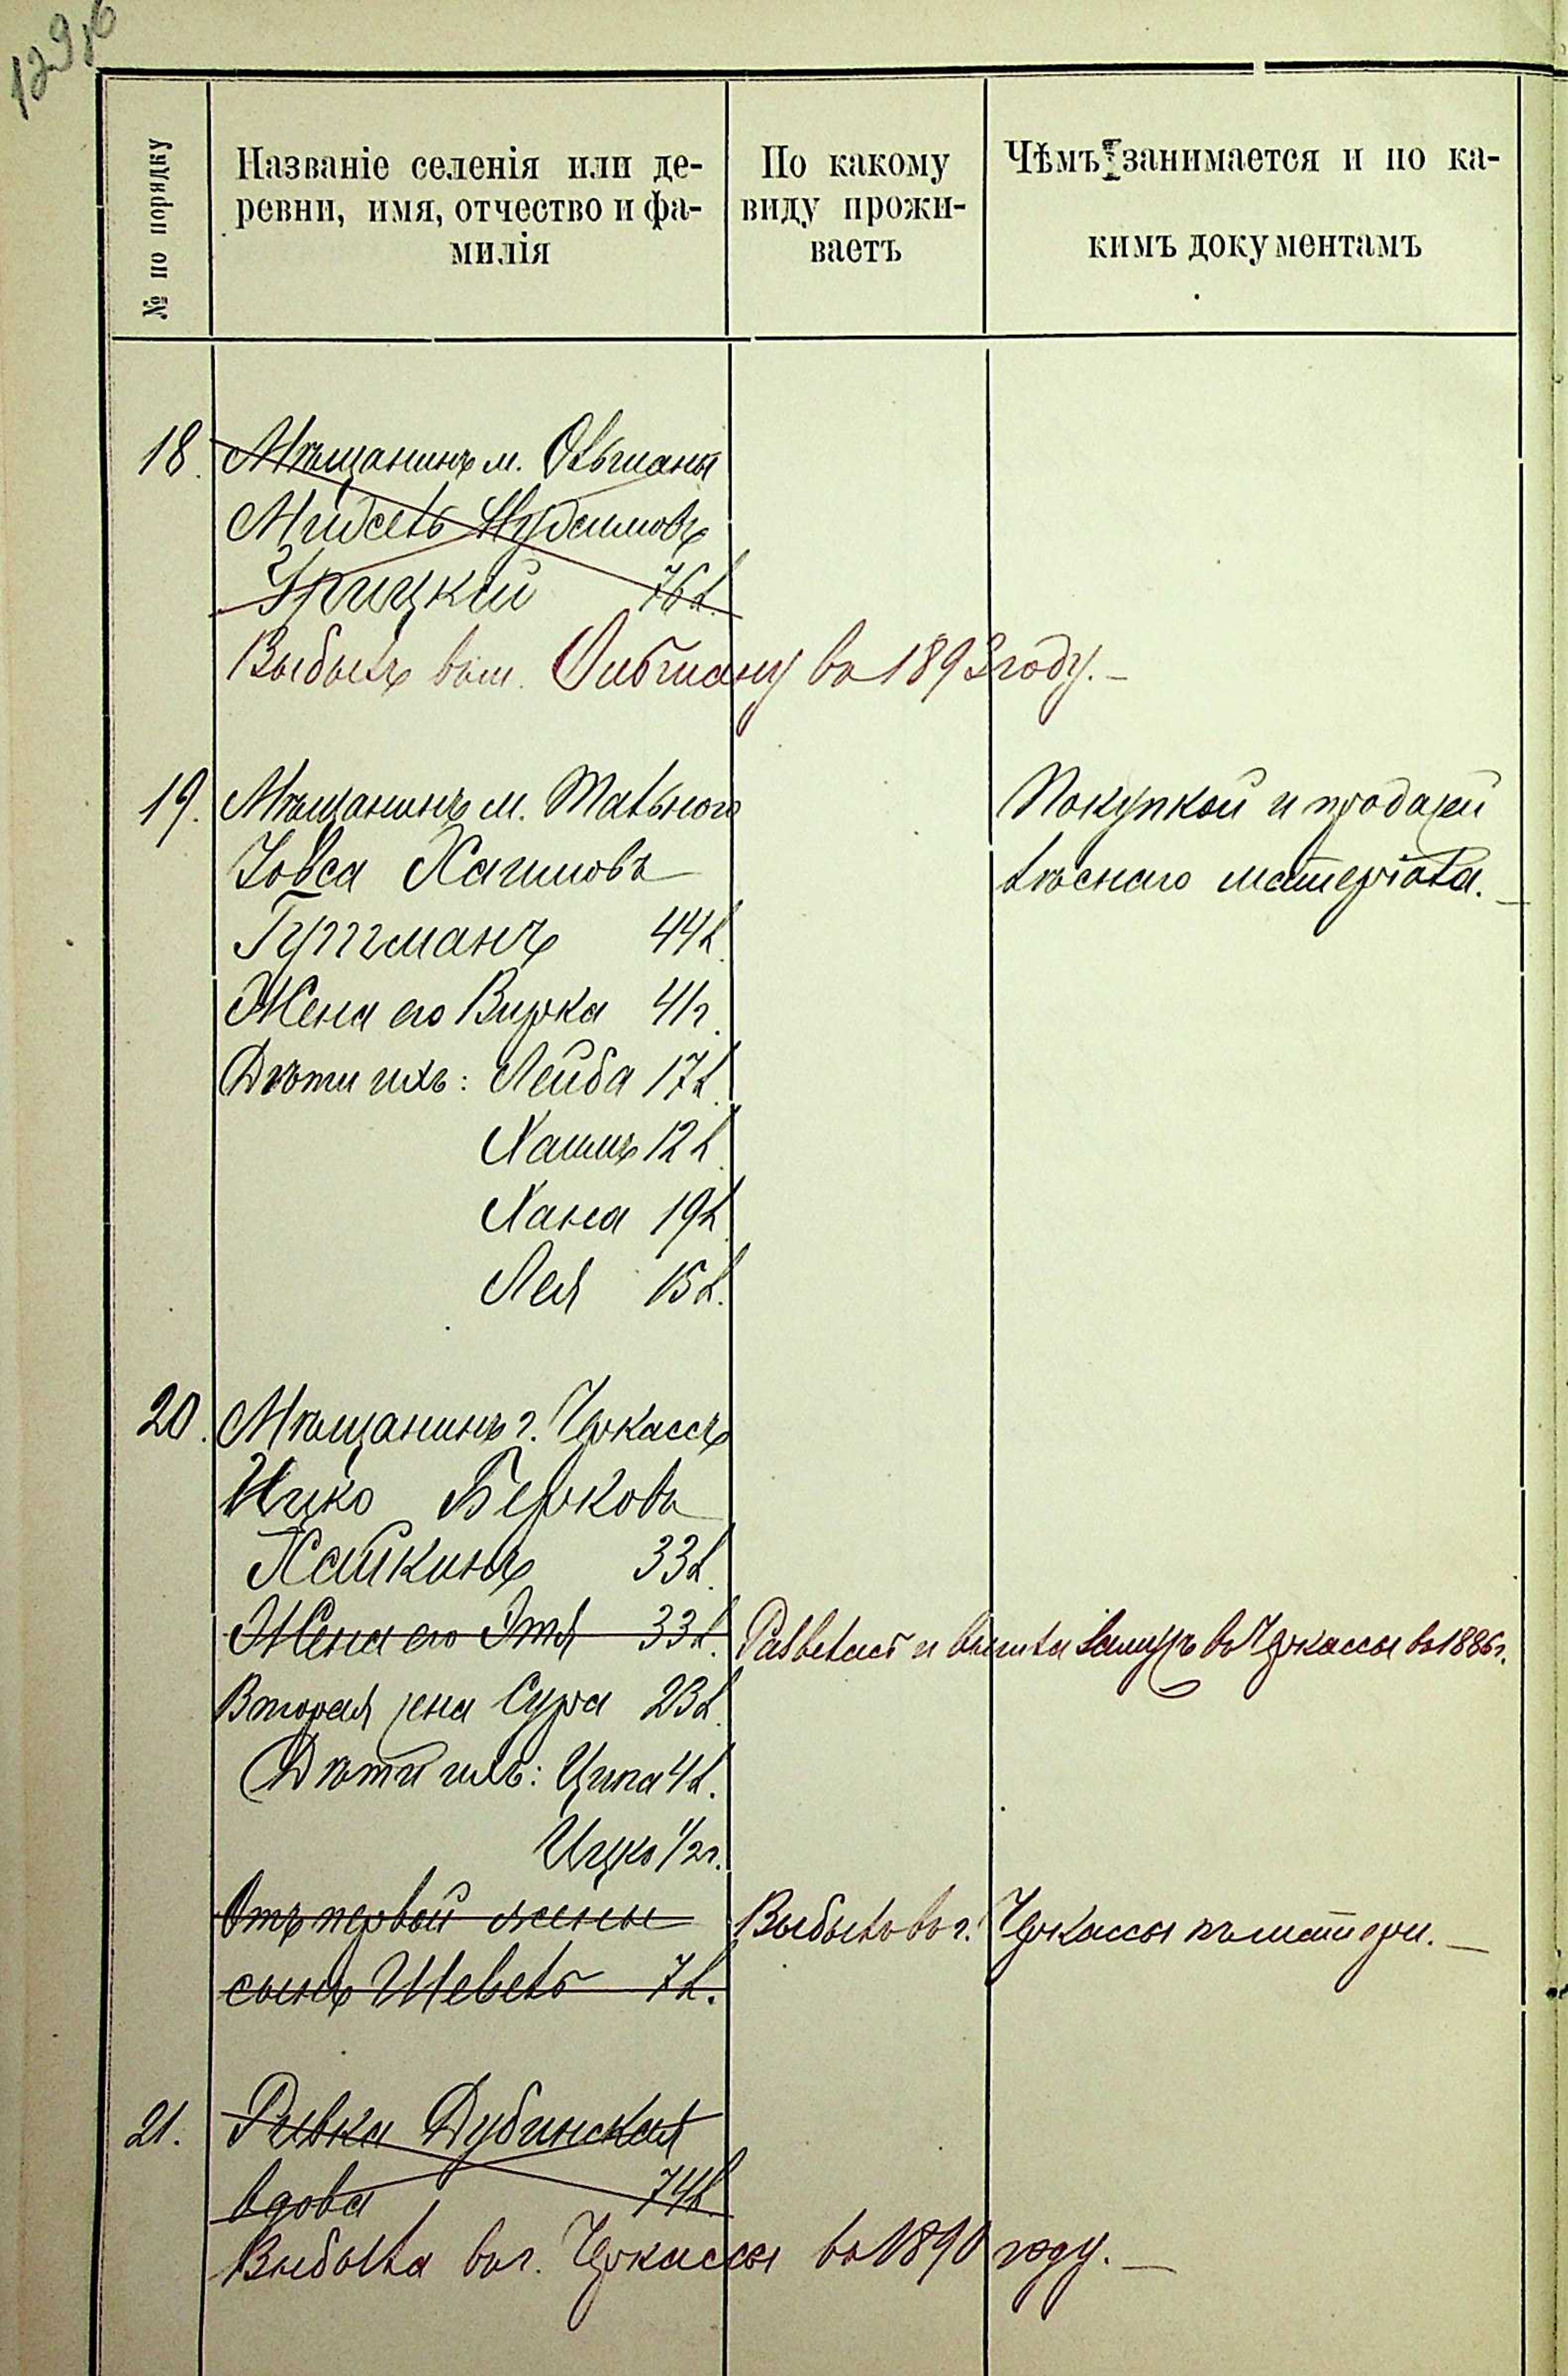 129об
№ по порядку
Названіе селенія или де-
ревни, имя, отчество и фа-
милія
По какому
виду прожи-
ваетъ
Чѣмъ занимается и по ка-
кимъ документамъ
18. Мѣщанинъ м. Ольшаны
Мидсель
Урицкій 76 л.
Выбылъ въ м. Ольшану въ 1893 году.
19. Мѣщанинъ м. Тальнаго
Іовса Хаимовъ
Гутманъ 44 л.
Жена его Бирка 41 г.
Дѣти ихъ: Лейба 17 л.
Хаимъ 12 л.
Хана 19 л.
Лея 15 л.
Покупкой и продажей
лѣснаго матеріала.
20. Мѣщанинъ г. Черкассъ
Ицко Берковъ
Хайкинъ 33 л.
Жена его Этя 33 л. и вышла замужъ въ Черкассы въ 1886 г.
Вторая жена Сура 23 л.
Дѣти ихъ: Ципа 4 л.
Ицко 1/2 г.
Отъ первой жены
сынъ Шевель 7 л.
Выбылъ въ г. Черкассы къ матери.
21. Ривка Дубинская
вдова 74 л.
Выбыла въ г. Черкассы въ 1890 году.